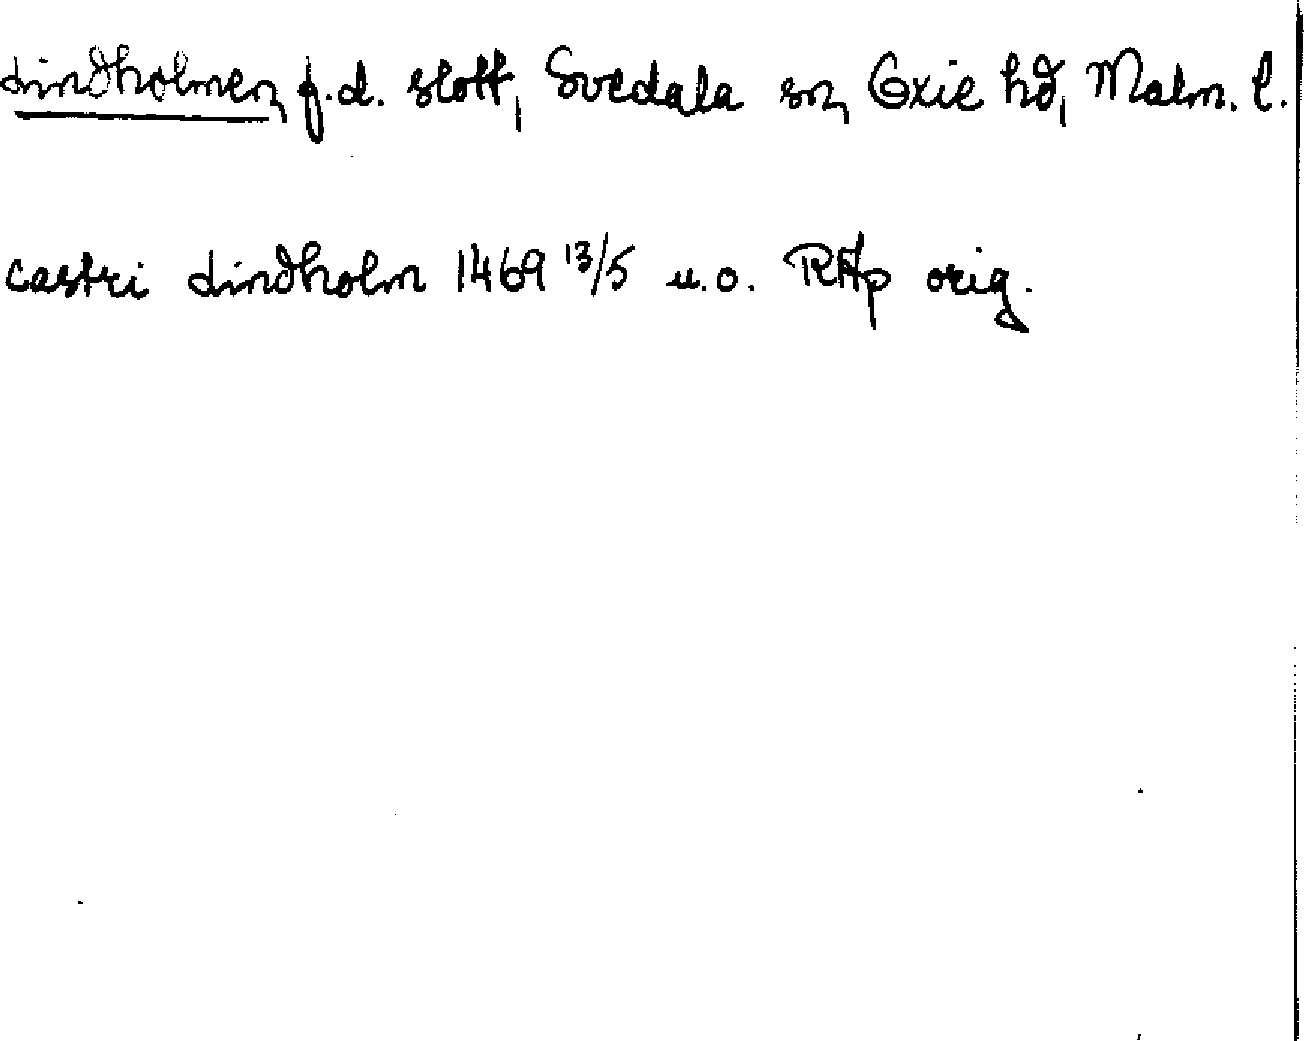 Lindholmen, f.d. slott, Svedala sn, Oxie hd, Malm. l.
castri Lindholm 1469 13/5 u.o. RAp orig.